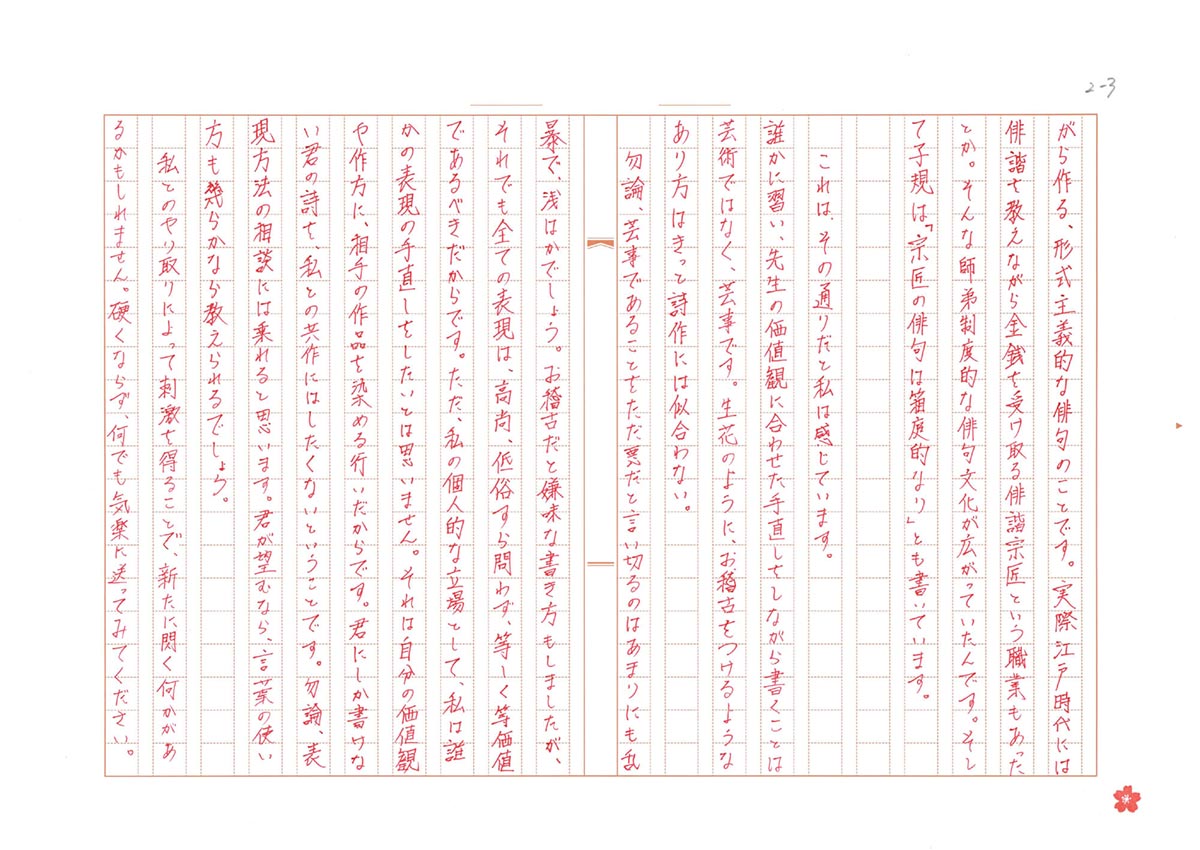 2-3
がら作る、形式主義的な俳句のことです。実際江戸時代には
俳諧を教えながら金銭を受け取る俳諧宗匠という職業もあった
とか。そんな師弟制度的な俳句文化が広がっていたんです。そし
て子規は「宗匠の俳句は箱庭的なり」とも書いています。
これは、その通りだと私は感じています。
誰かに習い、先生の価値観に合わせた手直しをしながら書くことは
芸術ではなく、芸事です。生花のように、お稽古をつけるような
あり方はきっと詩作には似合わない。
勿論、芸事であることをただ悪だと言い切るのはあまりにも乱
暴で、浅はかでしょう。お稽古だと嫌味な書き方もしましたが、
それでも全ての表現は、高尚、低俗すら問わず、等しく等価値
であるべきだからです。ただ、私の個人的な立場として、私は誰
かの表現の手直しをしたいとは思いません。それは自分の価値観
や作方に、相手の作品を染める行いだからです。君にしか書けな
い君の詩を、私との共作にはしたくないということです。勿論、表
現方法の相談には乗れると思います。君が望むなら、言葉の使い
方も幾らかなら教えられるでしょう。
私とのやり取りによって刺激を得ることで、新たに閃く何かがあ
るかもしれません。硬くならず、何でも気楽に送ってみてください。